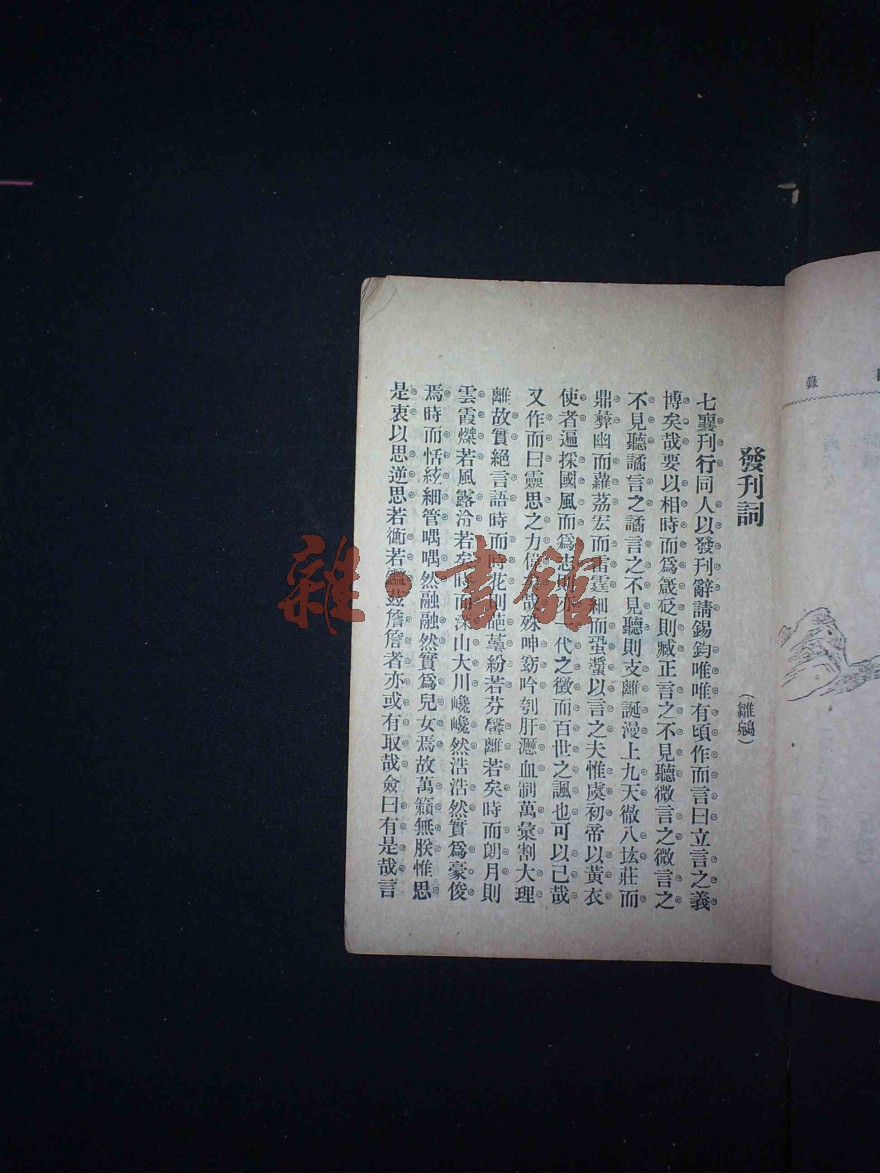 發刊詞
（雛鵷）
七襄刊行同人以發刊辭請錫鈞唯唯有頃作而言曰立言之義
博矣哉要以相時而爲箴砭則臧正言之不見聽微言之微言之
不見聽譎言之譎言之不見聽則支離誕漫上九天徹八垓莊而
鼎彝幽而蘿荔宏而雷霆細而蛩螿以言之夫惟虞初帝以黃衣
使者遍採國風而爲志 代之徵而百世之諷也可以已哉
又作而曰靈思之力 哉殊呻窈吟刳肝瀝血制萬彙割大理
離故實絕言語時而 花則葩蕚紛若芬馨離若矣時而朗月則
雲霞燦若風露泠若矣時而深山大川巉巉然浩浩然實爲豪俊
焉時而恬絃細管喁喁然融融然實爲兒女焉故萬籟無朕惟思
是衷以思逆思若衡若鑑玆詹詹者亦或有取哉僉曰有是哉言
錄
雜·書館